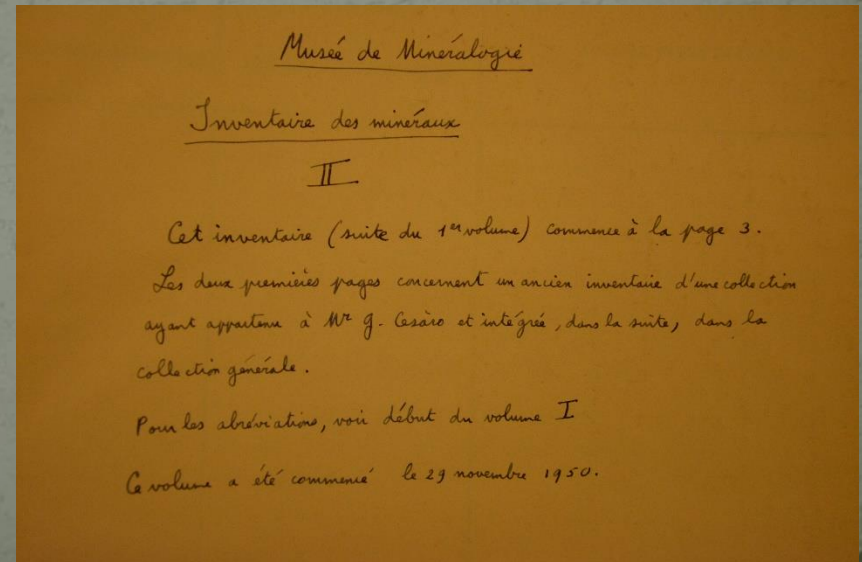 Musée de Minéralogie
Inventaire des minéraux
II
Cet inventaire (suite du 1er volume) commence à la page 3.
Les deux premières pages concernent un ancien inventaire d'une collection
ayant appartenu à Mr G. Cesàro et intégrée, dans la suite, dans la
collection générale.
Pour les abréviations, voir début du volume I
Ce volume a été commencé le 29 novembre 1950.